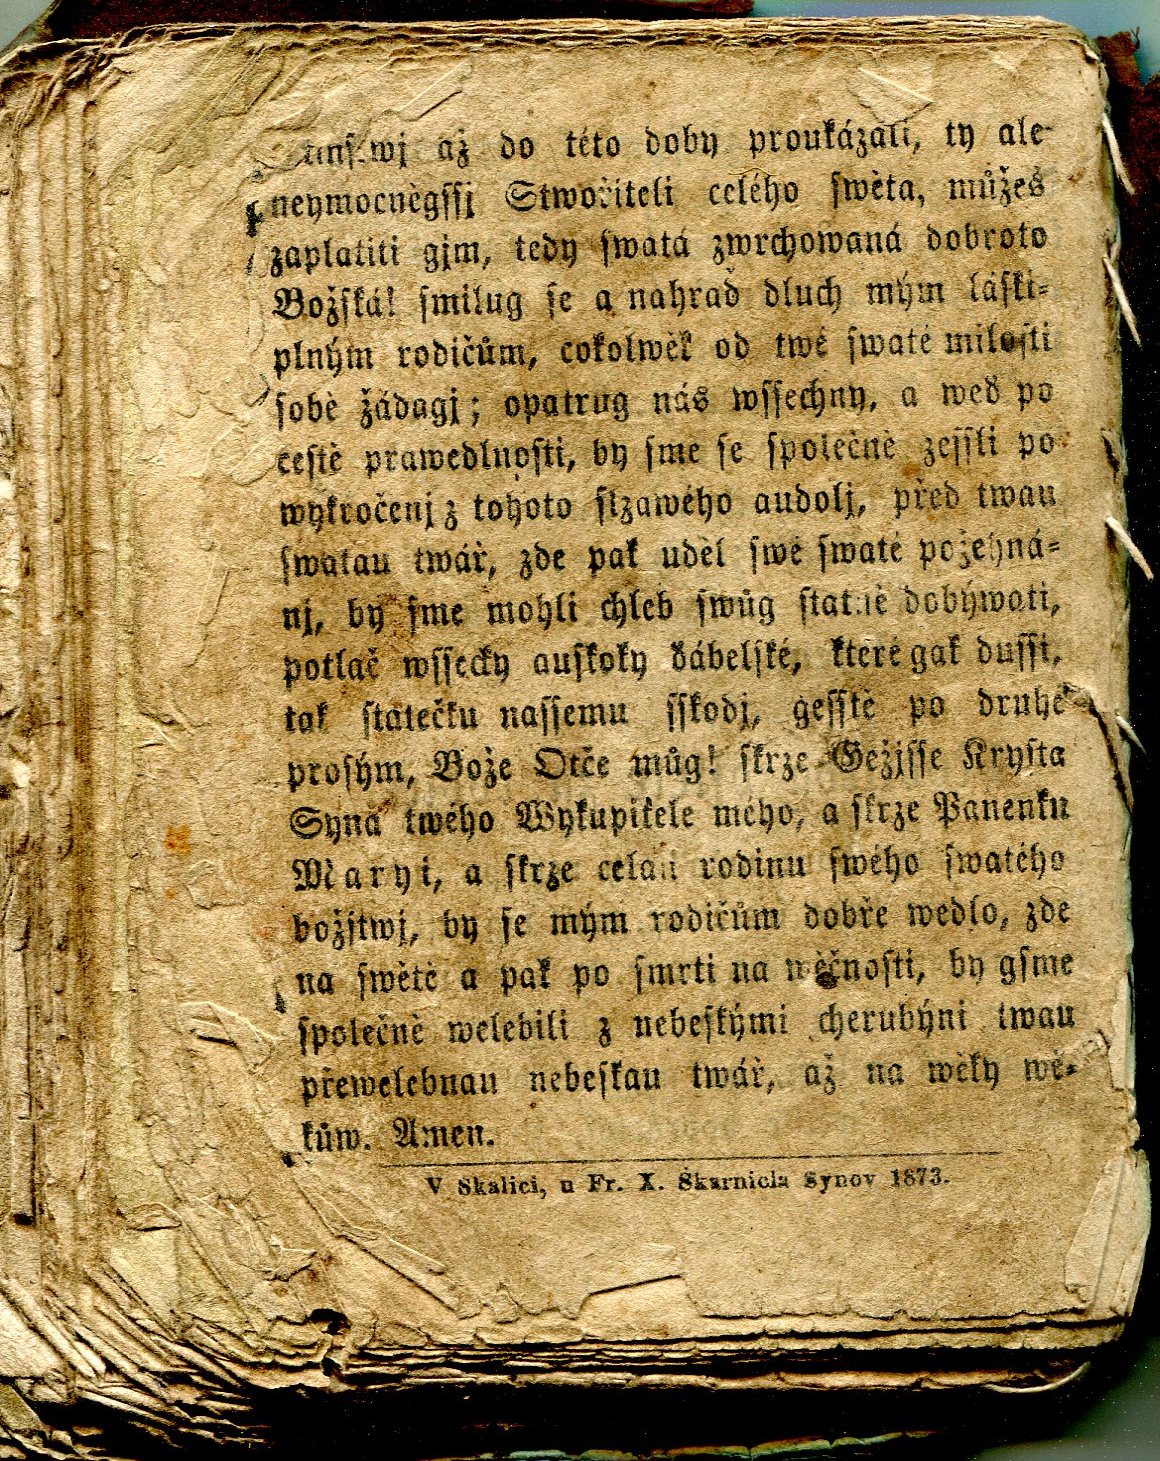 až do této doby proukázali, ty ale
neymocnègssj Stwořiteli celého swèta, můžeš
zaplatiti gjm, tedy swatá zwrchowaná dobroto
Božská! smilug se a nahraď dluch mým láski=
plným rodičům, cokolwèk od twé swaté milosti
sobè žádagj; opatrug nás wssechny, a weď po
cestè prawedlnosti, by sme se společnè zessli po
wykročenj z tohoto slzawého audolj, před twau
swatau twář, zde pak udèl swé swaté požehná=
nj, by sme mohli chléb swůg statnè dobýwati,
potlač wssecky auskoky ďábelské, které gak dussi,
tak statečku nassemu sskodj, gesstè po druhé
prosým, Bože Otče můg! skrze Gežjsse Krysta
Syna twého Wykupitele mého, a skrze Panenku
Maryi, a skrze celau rodinu swého swatého
božstwj, by se mým rodičům dobře wedlo, zde
na swètè a pak po smrti na wèčnosti, by gsme
společnè welebili z nebeskými cherubýni twau
přewelebnau nebeskau twář, až na wèky wè=
kůw. Amen.
V Skalici, u Fr. X. Škarnicla Synov 1873.